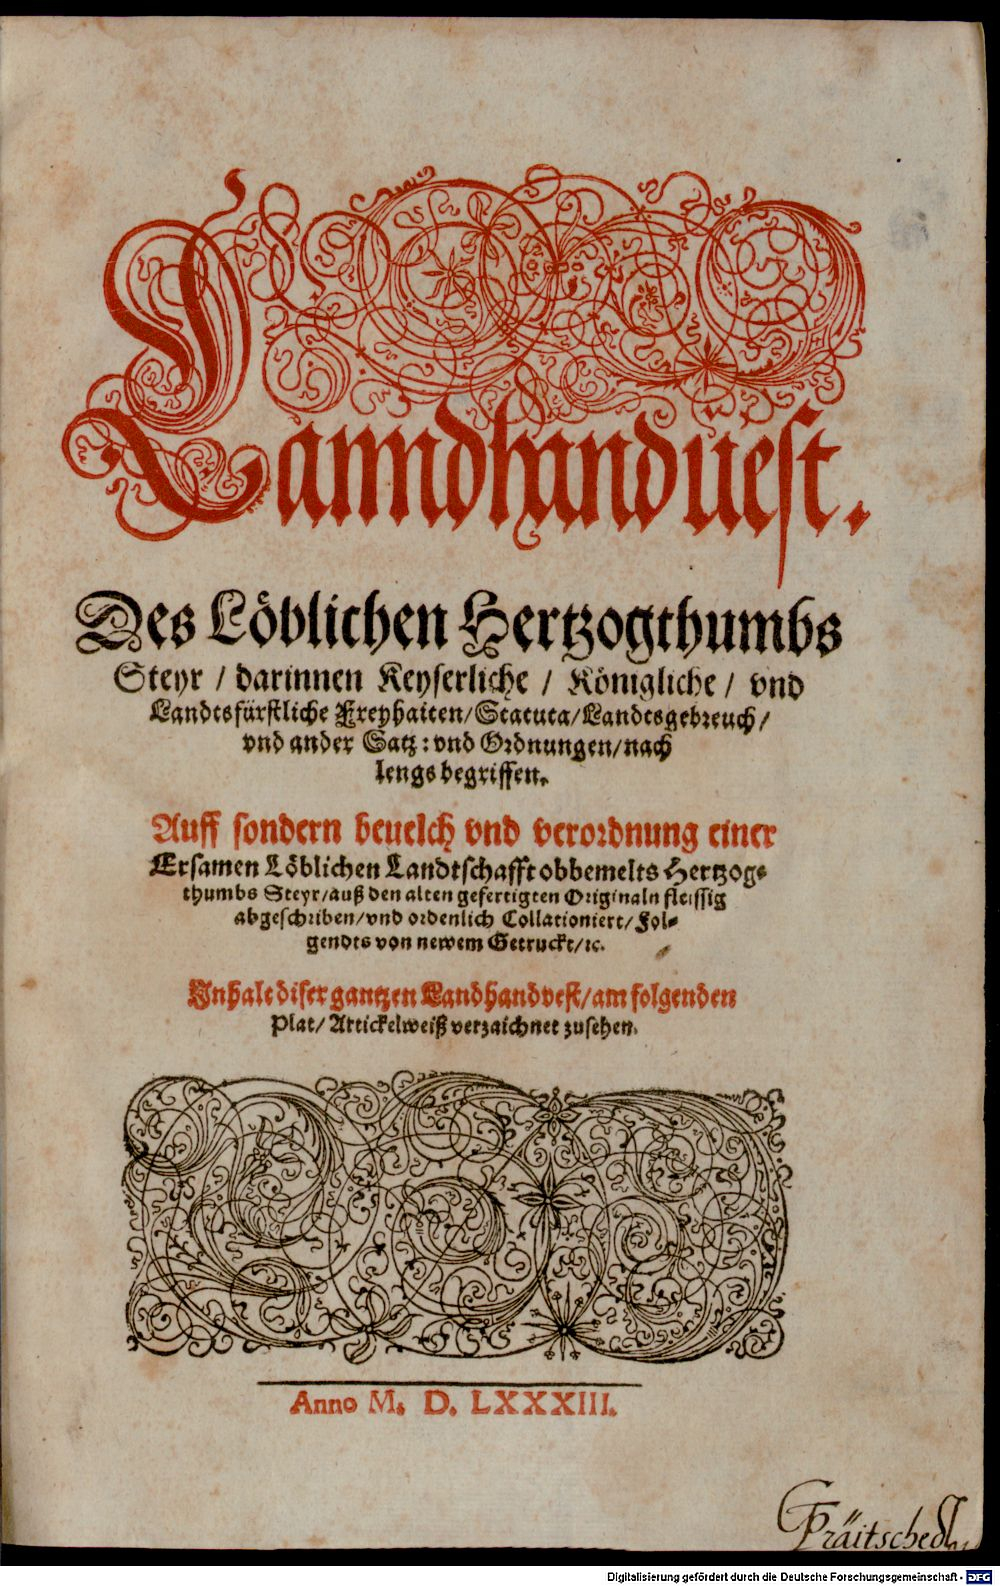 Lanndhandüest.
Des Löblichen Hertzogthumbs
Steyr / darinnen Keyserliche / Königliche / vnd
Landtsfürstliche Freyhaiten/Statuta/Landtsgebreuch/
vnd ander Satz: vnd Ordnungen/nach
lengs begriffen.
Auff sondern beuelch vnd verordnung einer
Ersamen Löblichen Landtschafft obbemelts Hertzog-
thumbs Steyr/auß den alten gefertigten Originaln fleissig
abgeschriben/vnd ordenlich Collationiert/Fol-
gendts von newem Getruckt/ꝛc.
Inhalt diser gantzen Landhandvest/am folgenden
Plat/ Artickelweiß verzaichnet zusehen.
Anno M. D. LXXXIII.
Digitalisierung gefördert durch die Deutsche Forschungsgemeinschaft - DFG